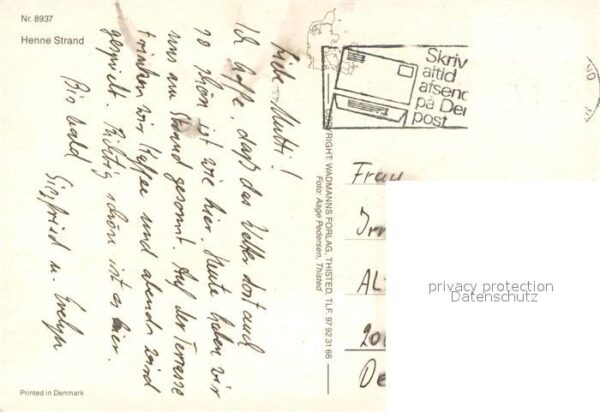 Nr. 8937
Henne Strand
Liebe Mutti!
Ich hoffe, daß das Wetter dort auch
so schön ist wie hier. Heute haben wir
uns am Strand gesonnt. Auf der Terrasse
trinken wir Kaffee und abends wird
gespielt. Richtig schön ist es hier.
Bis bald
Siegfried u. Evelyn
Printed in Denmark
COPYRIGHT: WADMANNS FORLAG, THISTED, TLF. 97 92 31 66
Foto: Aage Pedersen, Thisted
Skriv
altid
afsend
på De
post
Frau
privacy protection
Datenschutz